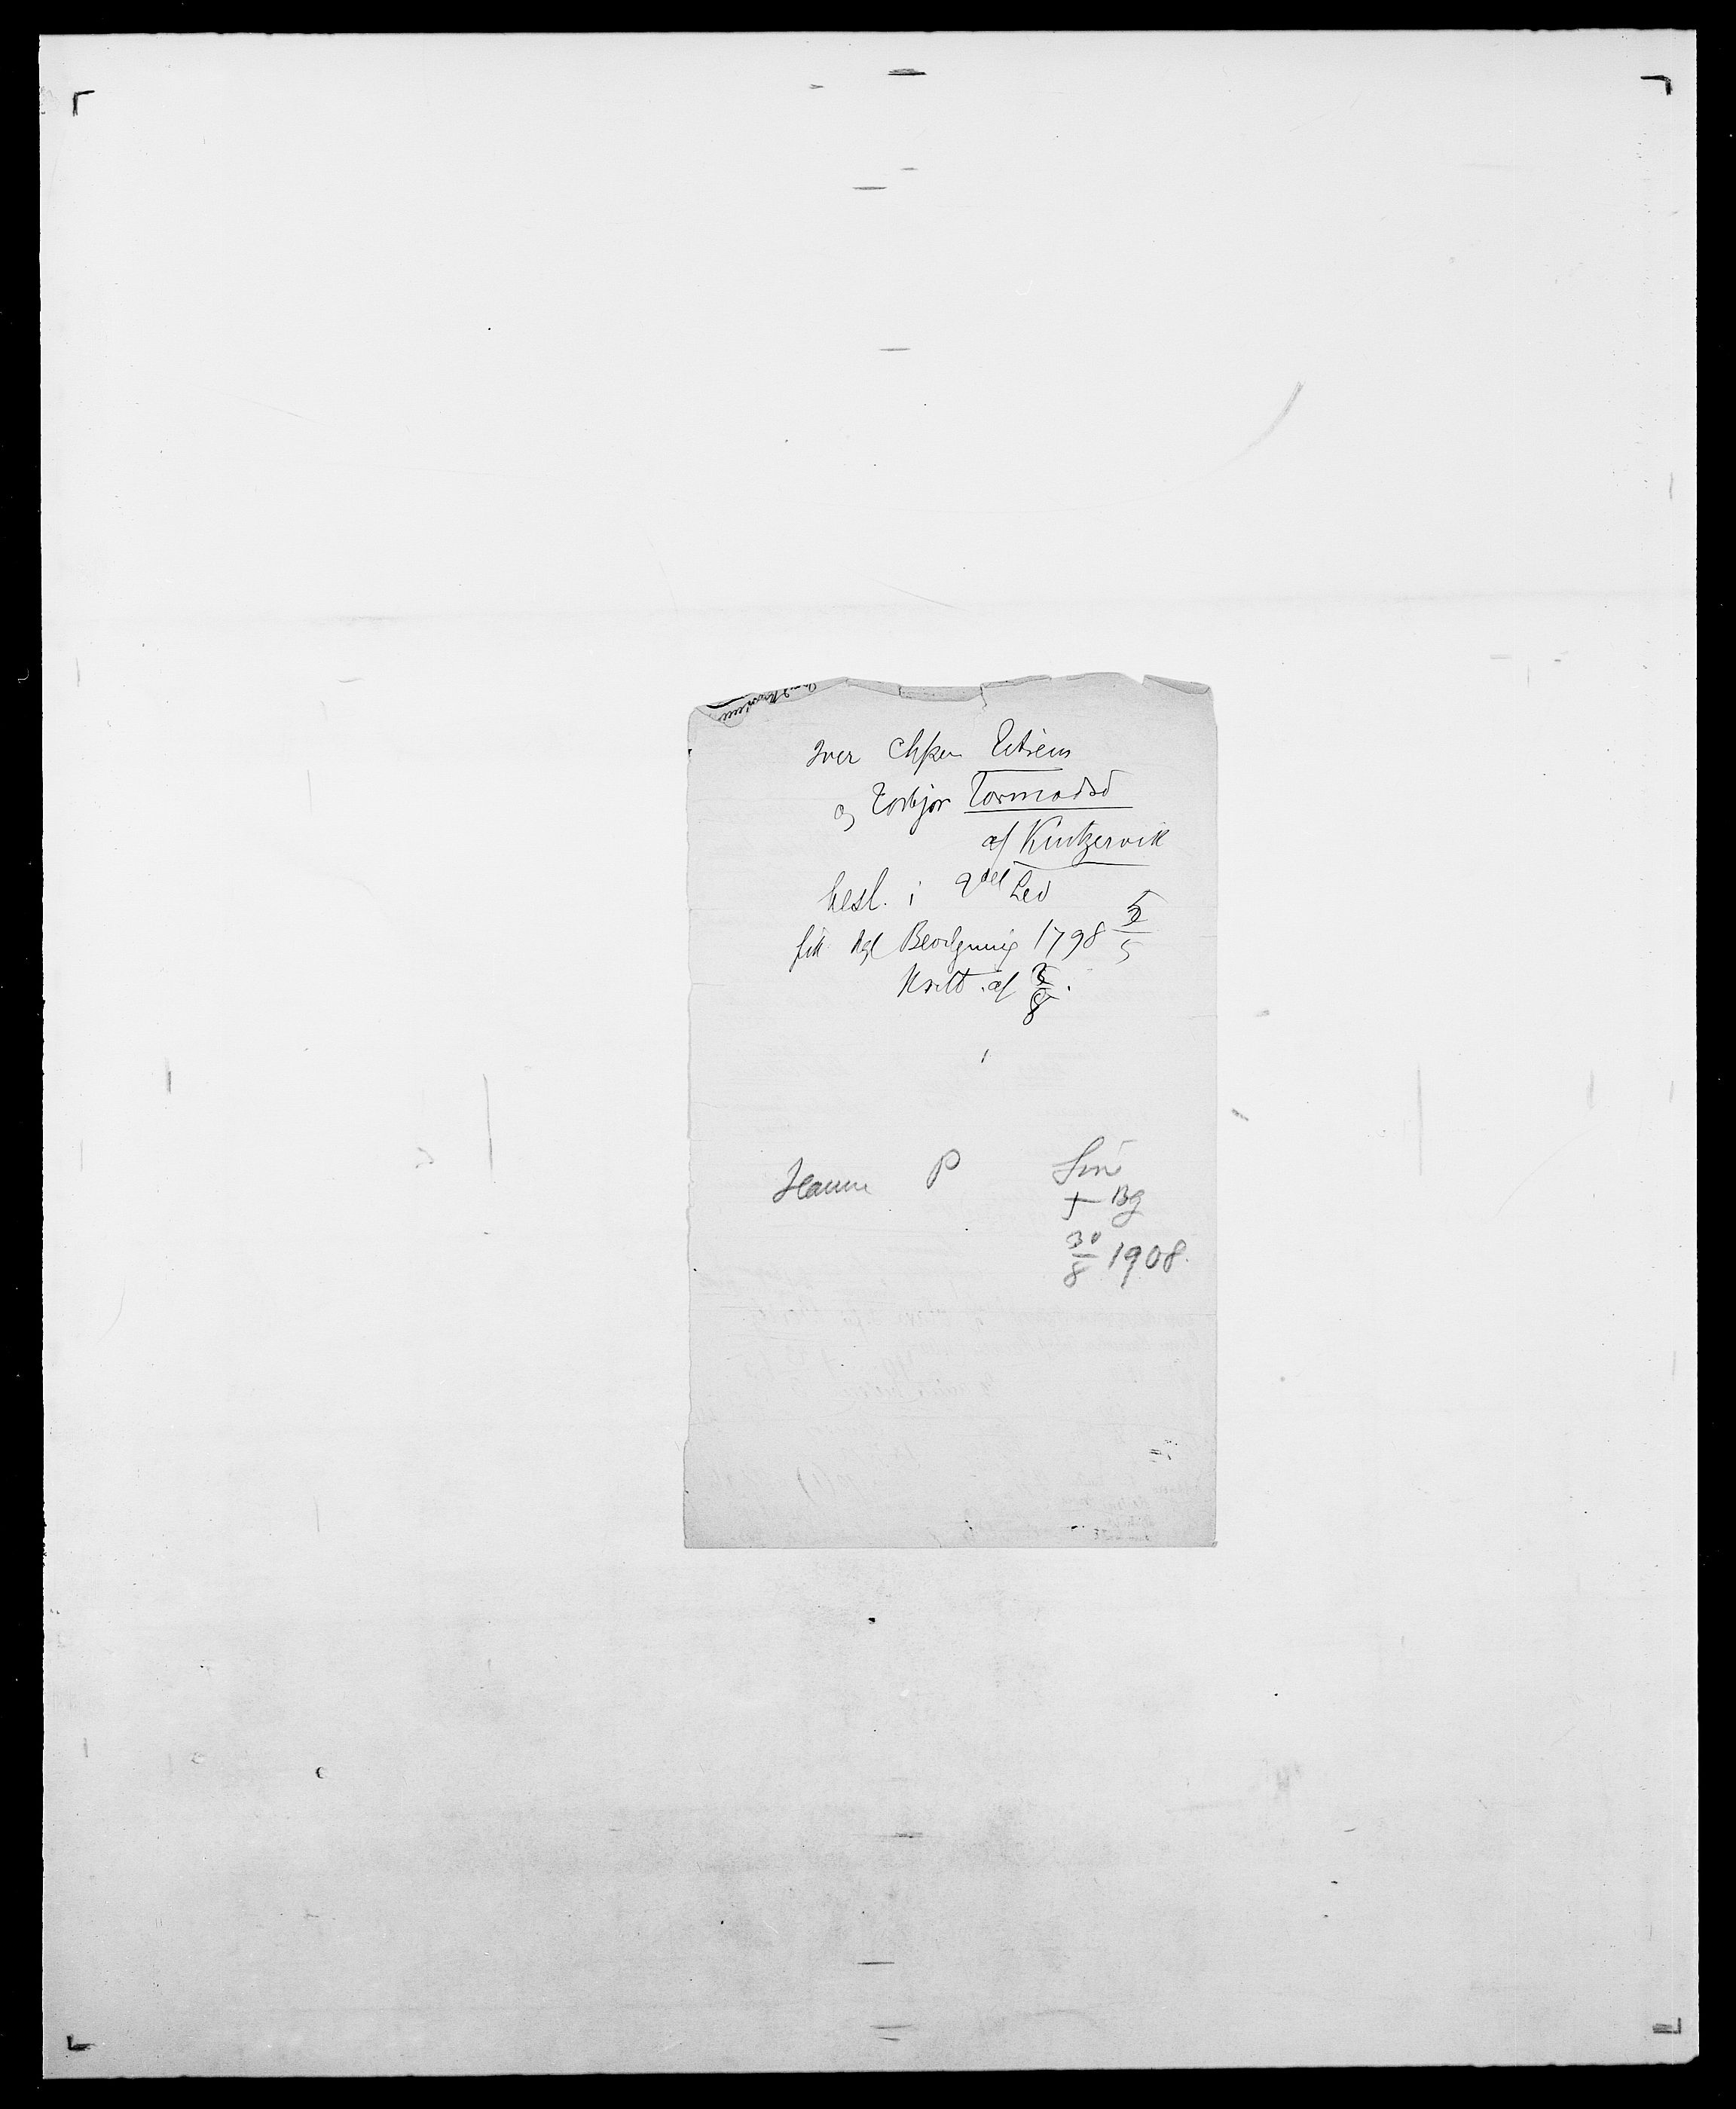 Iver Chƥen Utsiem
og Torbjør Tormodsd
af Kintzervik
besl. i 2det Led
fik kgl Bevilgning 1798 5/5
Kvitt. af 3/8.
Hanne P Sm
+ Bg
30/8 1908.